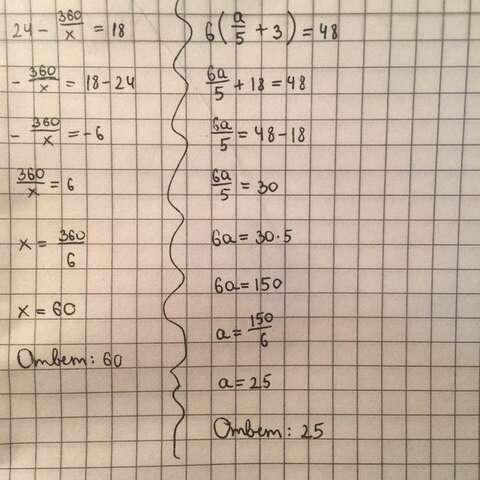 24 - 360/x = 18
- 360/x = 18 - 24
- 360/x = -6
360/x = 6
x = 360/6
x = 60
Ответ: 60
6(a/5 + 3) = 48
6a/5 + 18 = 48
6a/5 = 48 - 18
6a/5 = 30
6a = 30·5
6a = 150
a = 150/6
a = 25
Ответ: 25